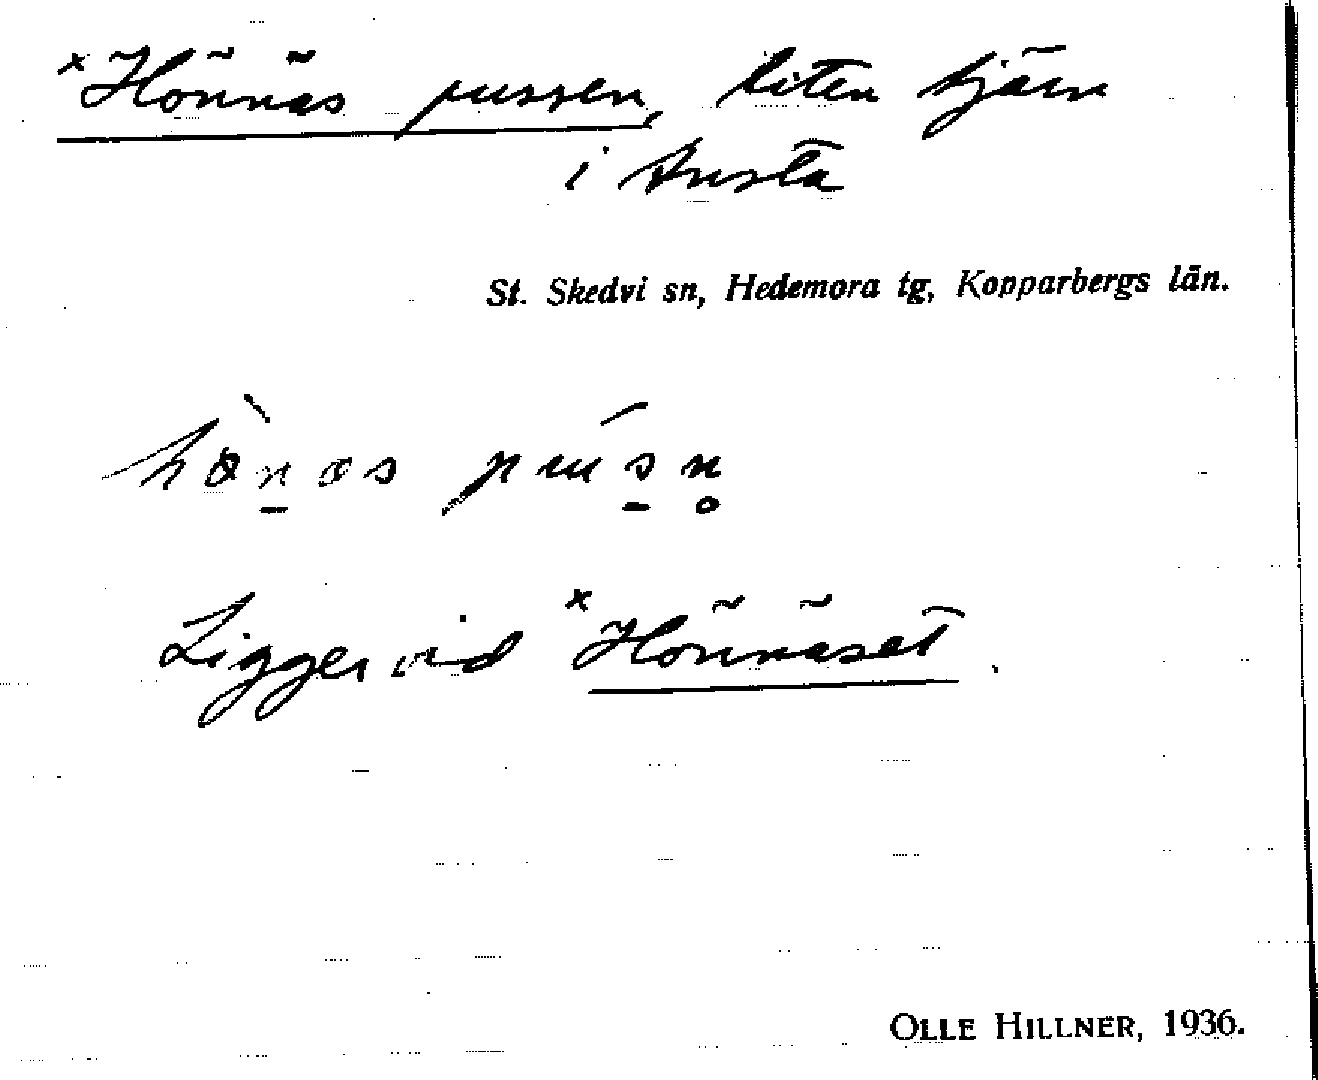 ×Hönnäs pussen, liten tjärn
i Arsta
St. Skedvi sn, Hedemora tg, Kopparbergs län.
Ligger vid ×Hönnäset.
OLLE HILLNER, 1936.